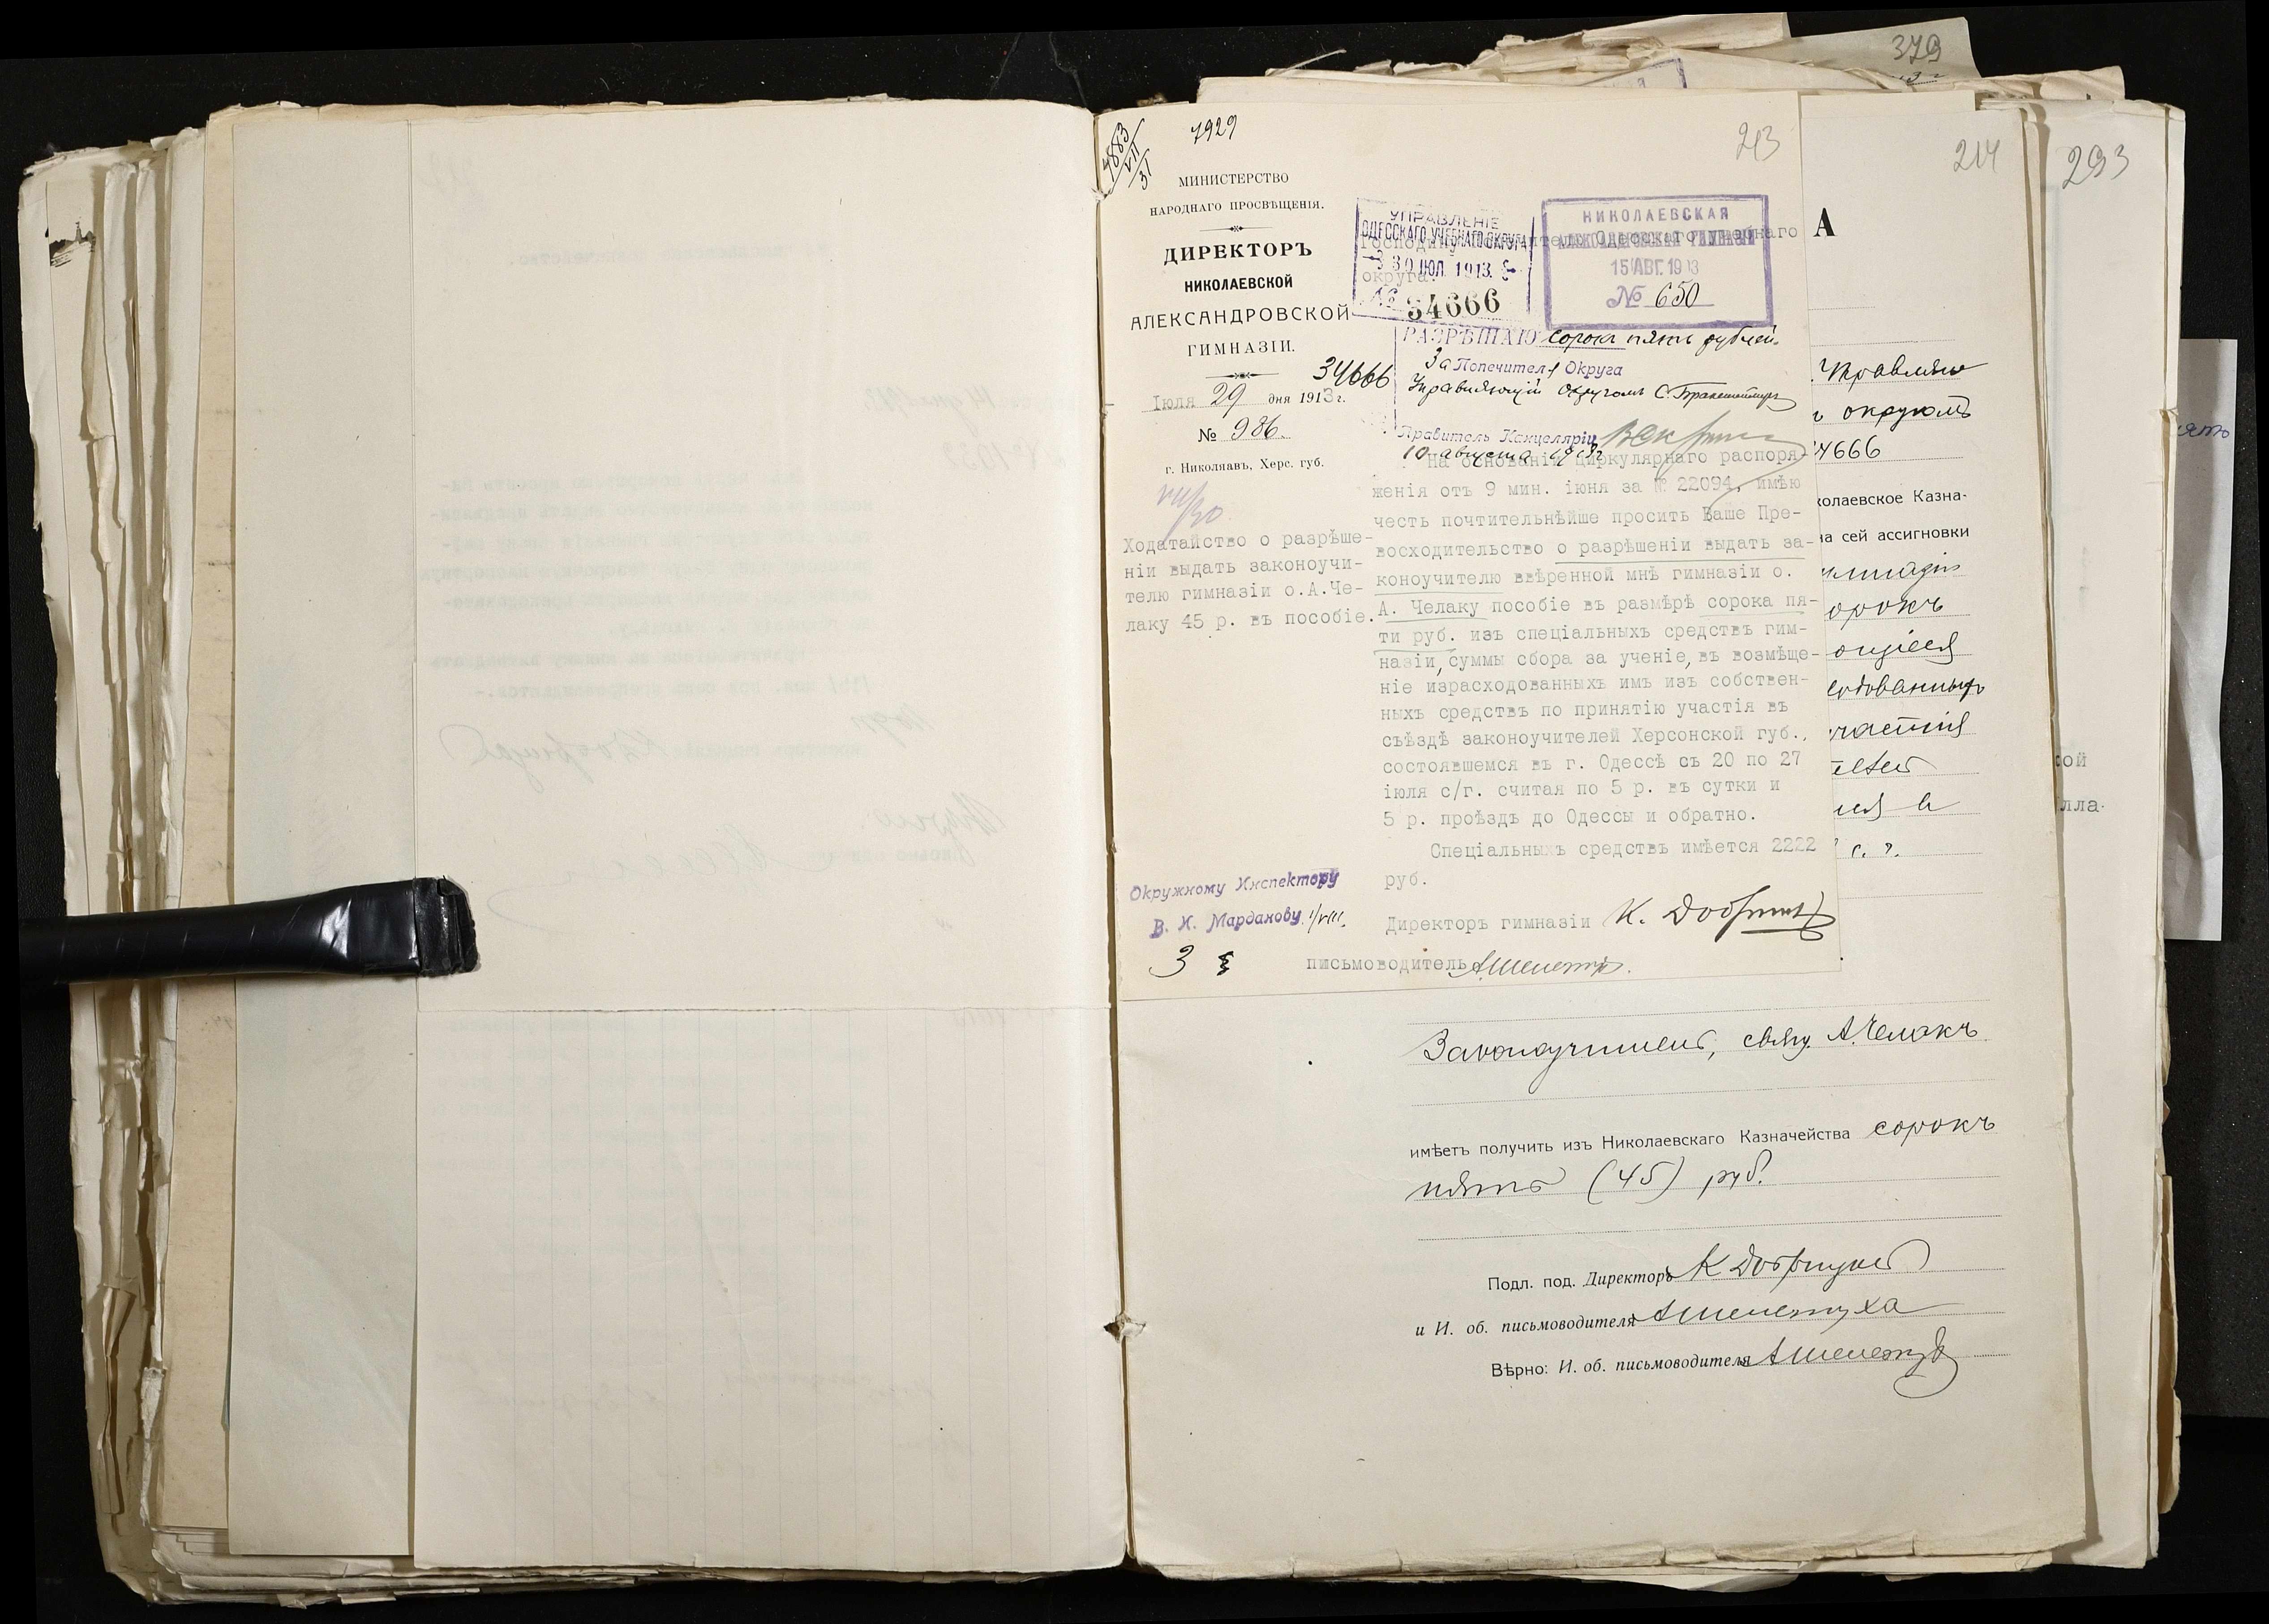 379
7929
4883
VII
31
213
214
293
МИНИСТЕРСТВО
НАРОДНАГО ПРОСВѢЩЕНІЯ.
ДИРЕКТОРЪ
НИКОЛАЕВСКОЙ
АЛЕКСАНДРОВСКОЙ
ГИМНАЗІИ.
34666
Іюля 29 дня 1913 г.
№ 986.
г. Николяавъ, Херс. губ.
Ходатайство о разрѣше-
ніи выдать законоучи-
телю гимназіи о.А.Че-
лаку 45 р. въ пособіе.
Окружному Инспектору
В. И. Марданову. 1/VIII.
3
УПРАВЛЕНІЕ
ОДЕССКАГО УЧЕБНАГО ОКРУГА
30 ІЮЛ. 1913.
№ 34666
НИКОЛАЕВСКАЯ
АЛЕКСАНДРОВСКАЯ ГИМНАЗІЯ
15 АВГ. 1913
№ 650
Господину Попечителю Одесскаго учебнаго
округа.
РАЗРѢШАЮ сорокъ пять рублей.
За Попечителя Округа
Управляющій Округомъ С.
Правитель Канцеляріи
10 августа 1913 г.
На основаніи циркулярнаго распоря-
женія отъ 9 мин. іюня за № 22094, имѣю
честь почтительнѣйше просить Ваше Пре-
восходительство о разрѣшеніи выдать за-
коноучителю ввѣренной мнѣ гимназіи о.
А. Челаку пособіе въ размѣрѣ сорока пя-
ти руб. изъ спеціальныхъ средствъ гим-
назіи, суммы сбора за ученіе, въ возмѣще-
ніе израсходованныхъ имъ изъ собствен-
ныхъ средствъ по принятію участія въ
съѣздѣ законоучителей Херсонской губ.,
состоявшемся въ г. Одессѣ съ 20 по 27
іюля с/г. считая по 5 р. въ сутки и
5 р. проѣздъ до Одессы и обратно.
Спеціальныхъ средствъ имѣется 2222
руб.
Директоръ гимназіи К.
письмоводитель
А
округомъ
4666
колаевское Казна-
на сей ассигновки
орокъ
с. г.
ой
лла-
Законоучитель, свящ. А. Челакъ
имѣетъ получить изъ Николаевскаго Казначейства сорокъ
пять (45) руб.
Подл. под. Директоръ К
и И. об. письмоводителя А Шелестуха
Вѣрно: И. об. письмоводителя